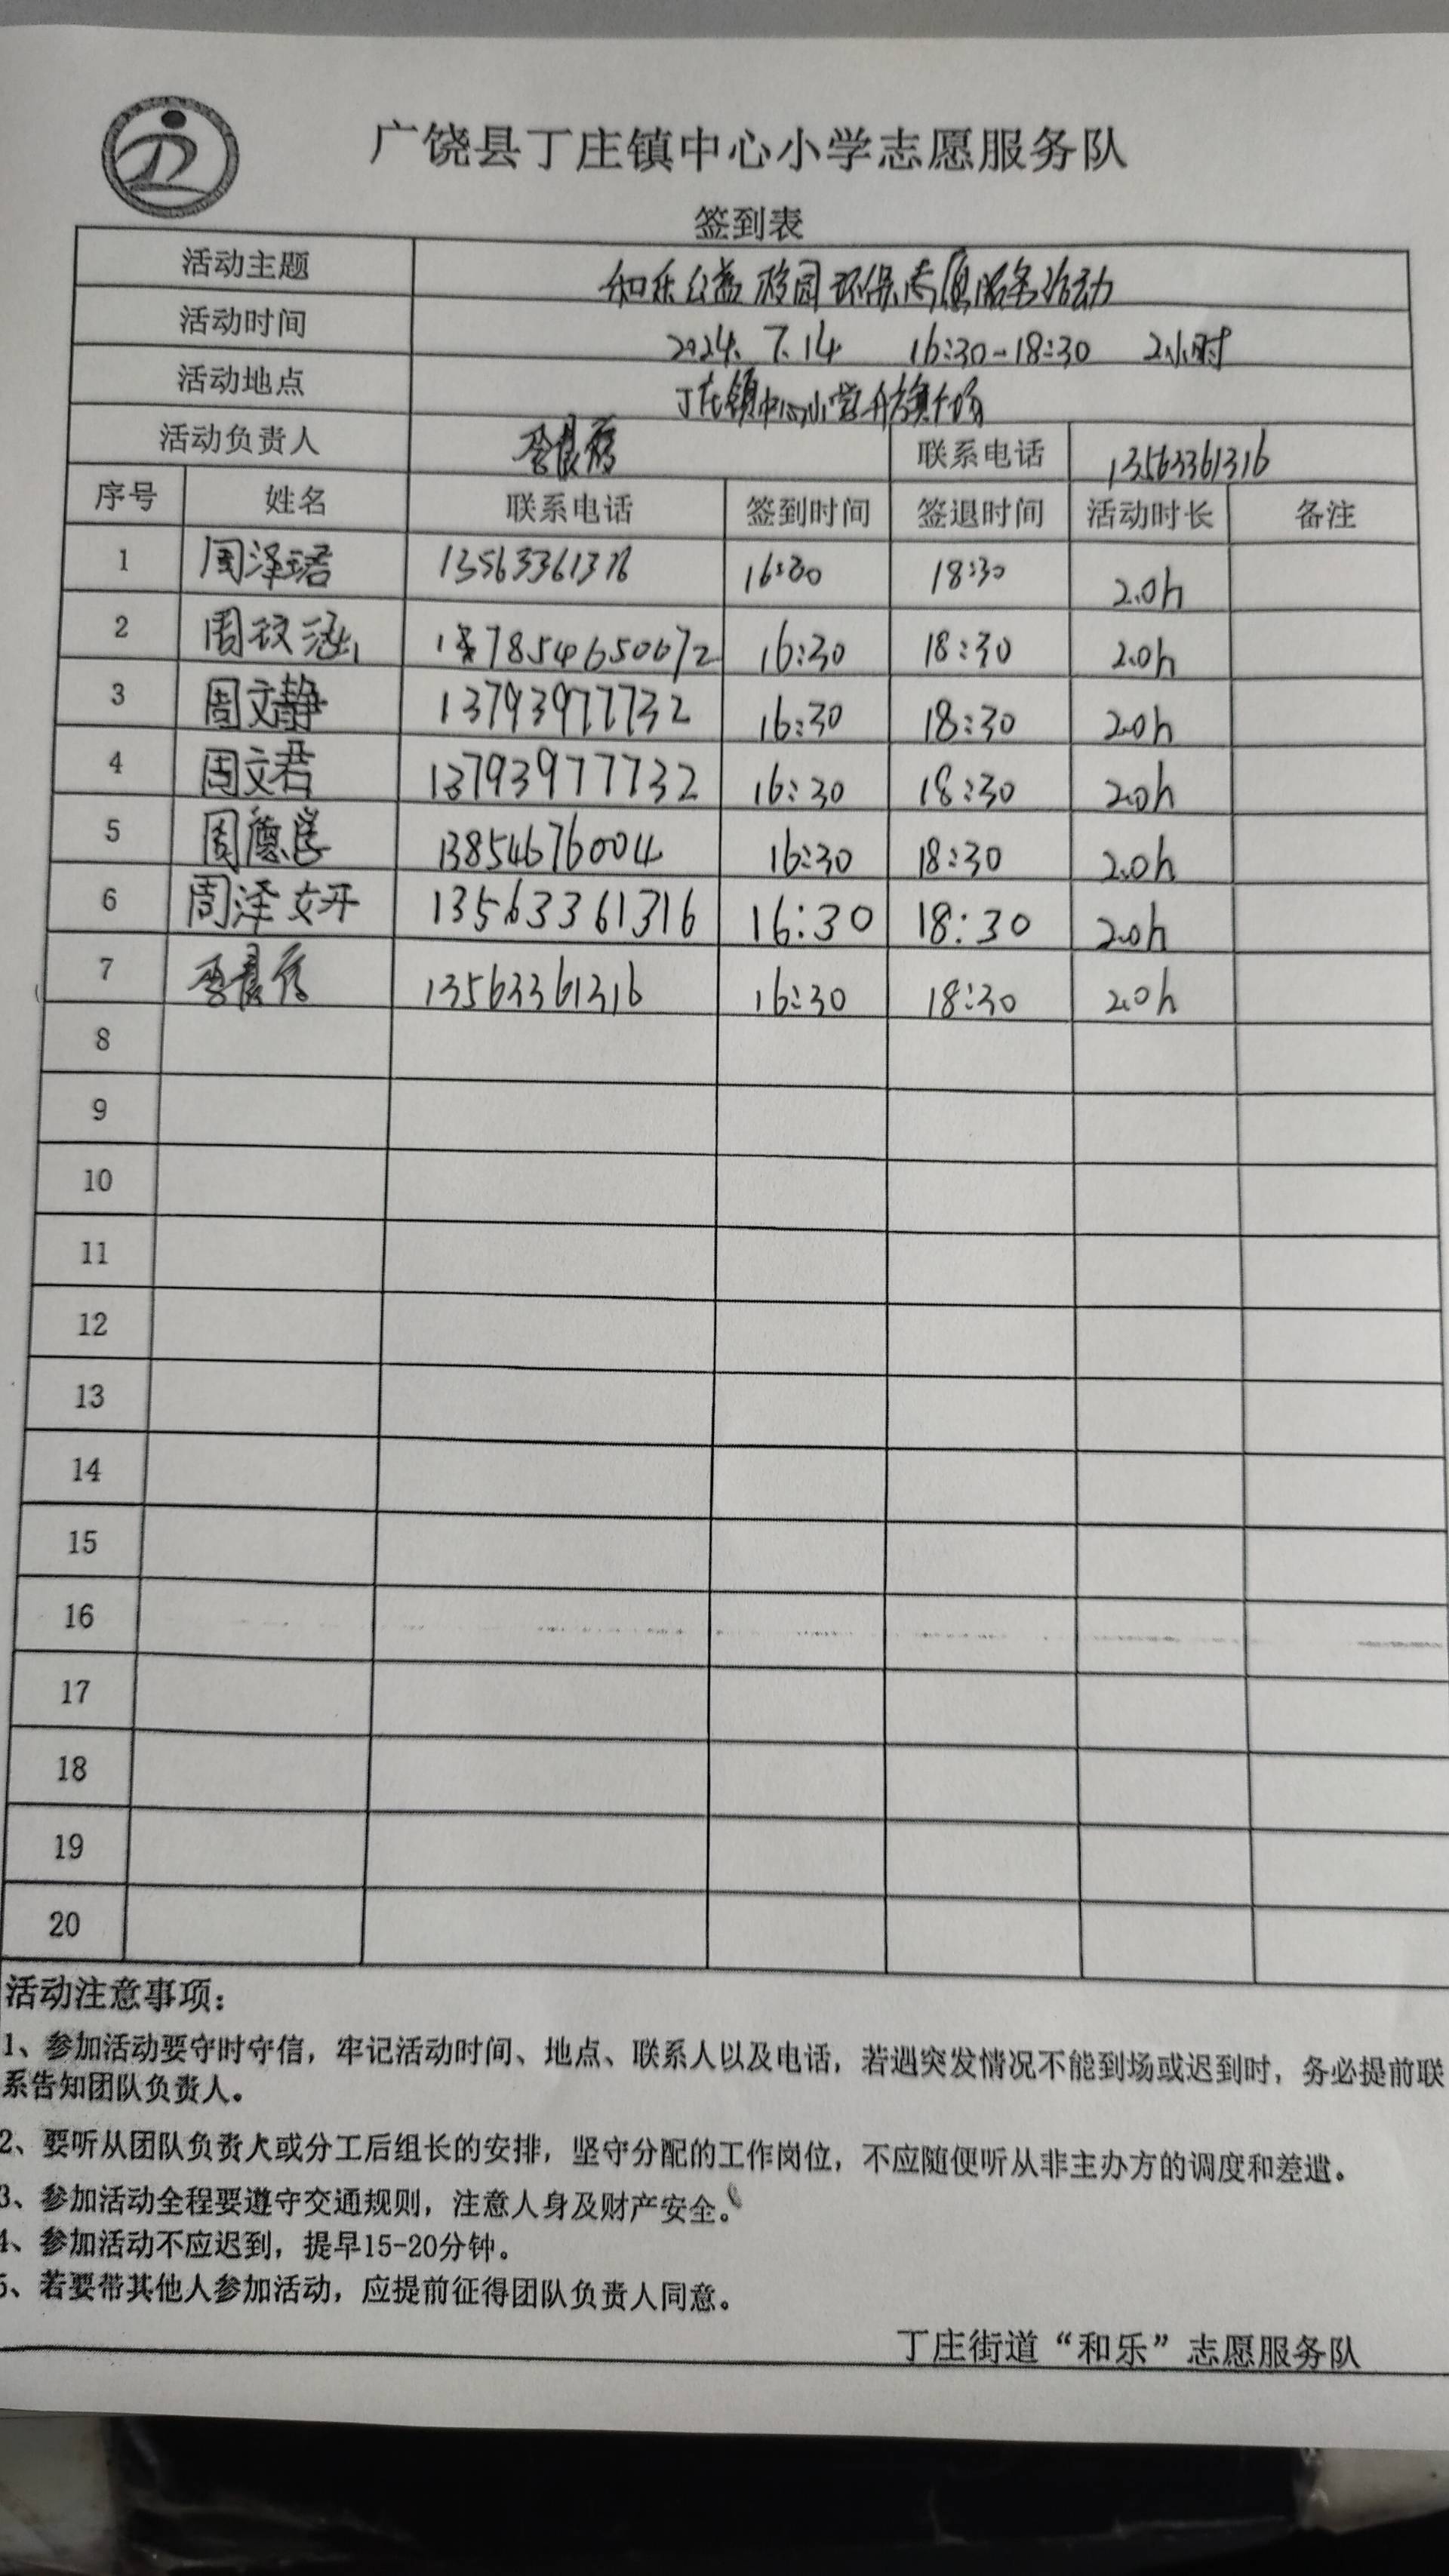 广饶县丁庄镇中心小学志愿服务队
签到表
活动主题 和乐公益校园环保志愿服务活动
活动时间 2024.7.14 16:30-18:30 2小时
活动地点 丁庄镇中心小学升旗广场
活动负责人 联系电话 13563361316
序号 姓名 联系电话 签到时间 签退时间 活动时长 备注
1 周泽珺 16:30 18:30 2.0h
2 16:30 18:30 2.0h
3 周文静 13793977732 16:30 18:30 2.0h
4 周文君 13793977732 16:30 18:30 2.0h
5 13854676004 16:30 18:30 2.0h
6 周泽妍 13563361316 16:30 18:30 2.0h
7 13563361316 16:30 18:30 2.0h
8
9
10
11
12
13
14
15
16
17
18
19
20
活动注意事项：
1、参加活动要守时守信，牢记活动时间、地点、联系人以及电话，若遇突发情况不能到场或迟到时，务必提前联
系告知团队负责人。
2、要听从团队负责人或分工后组长的安排，坚守分配的工作岗位，不应随便听从非主办方的调度和差遣。
3、参加活动全程要遵守交通规则，注意人身及财产安全。
4、参加活动不应迟到，提早15-20分钟。
5、若要带其他人参加活动，应提前征得团队负责人同意。
丁庄街道“和乐”志愿服务队